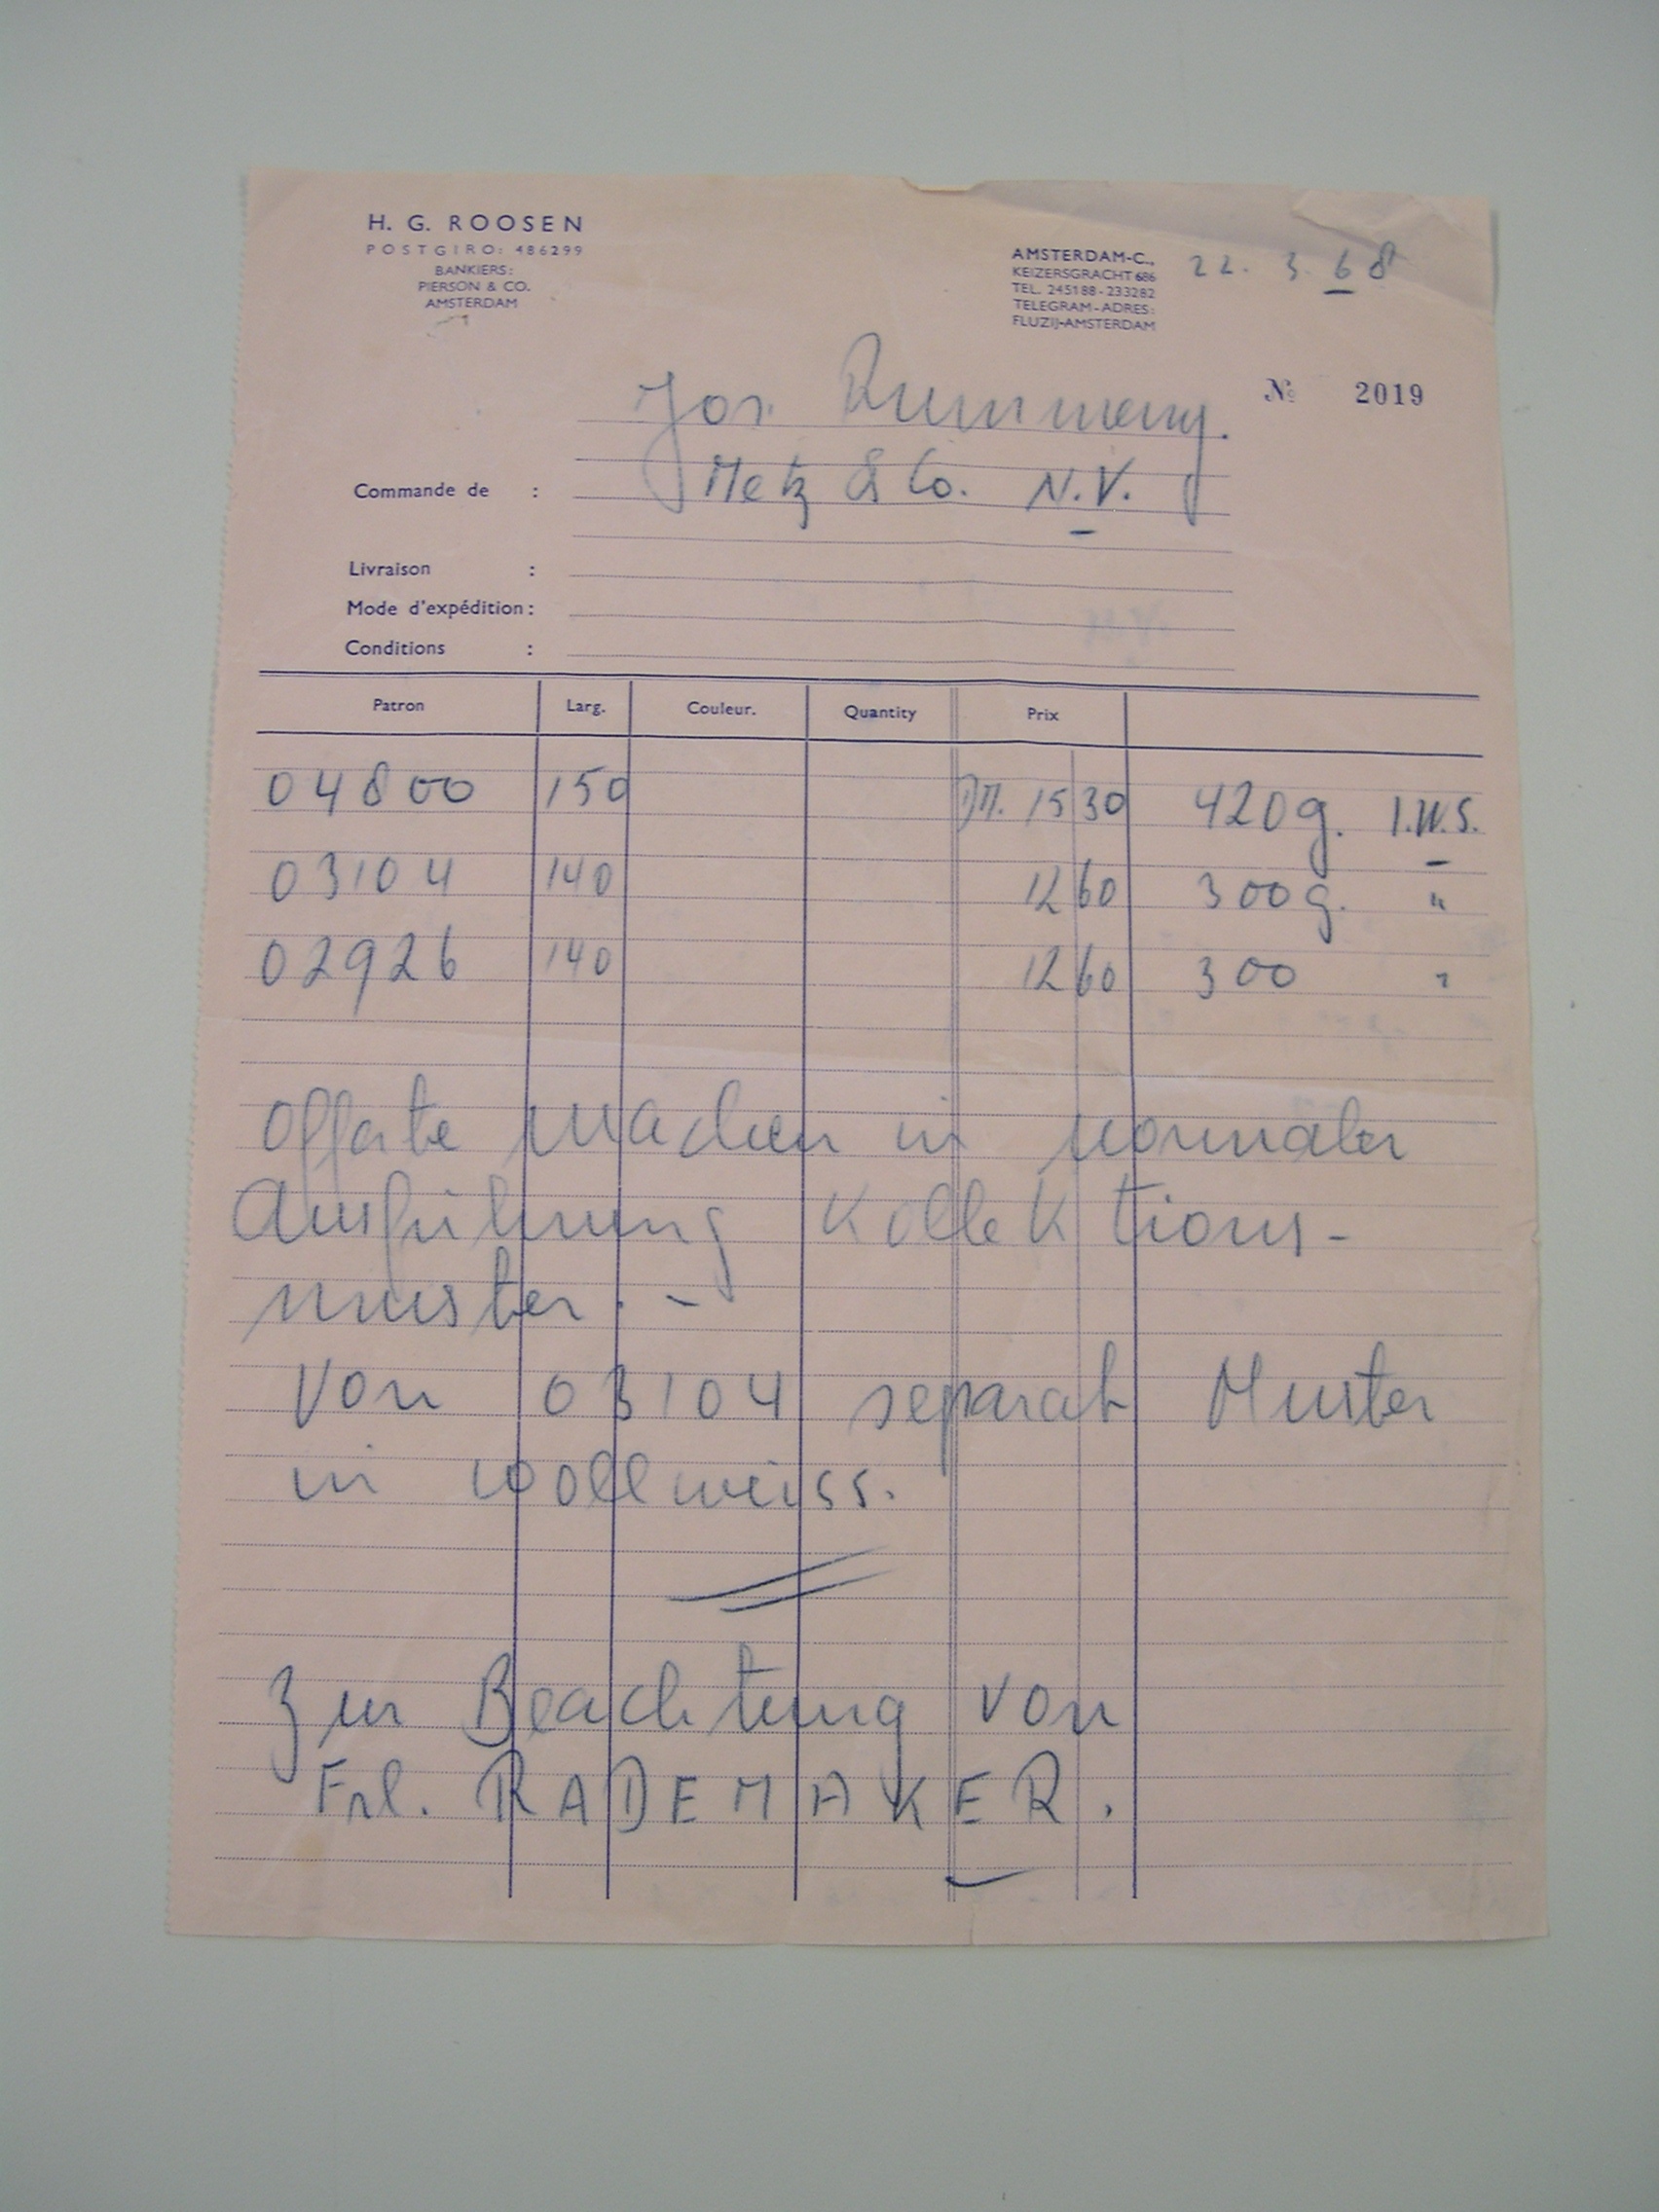 H. G. ROOSEN
POSTGIRO: 486299
BANKIERS:
PIERSON & CO.
AMSTERDAM
AMSTERDAM-C., 22. 3. 68
KEIZERSGRACHT 686
TEL. 245188-233282
TELEGRAM-ADRES:
FLUZIJ-AMSTERDAM
Nº 2019
Jos.
Commande de : Metz & Co. N.V.
Livraison :
Mode d'expédition:
Conditions :
Patron Larg. Couleur. Quantity Prix
04800 150 DM. 15 30 420g. I.W.S.
03104 140 12 60 300g. "
02926 140 12 60 300 "
Offerte machen in normaler
Ausführung Kollektions-
muster. -
Von 03104 separat Muster
in wollweiss.
Zur Beachtung von
Frl. RADEMAKER.